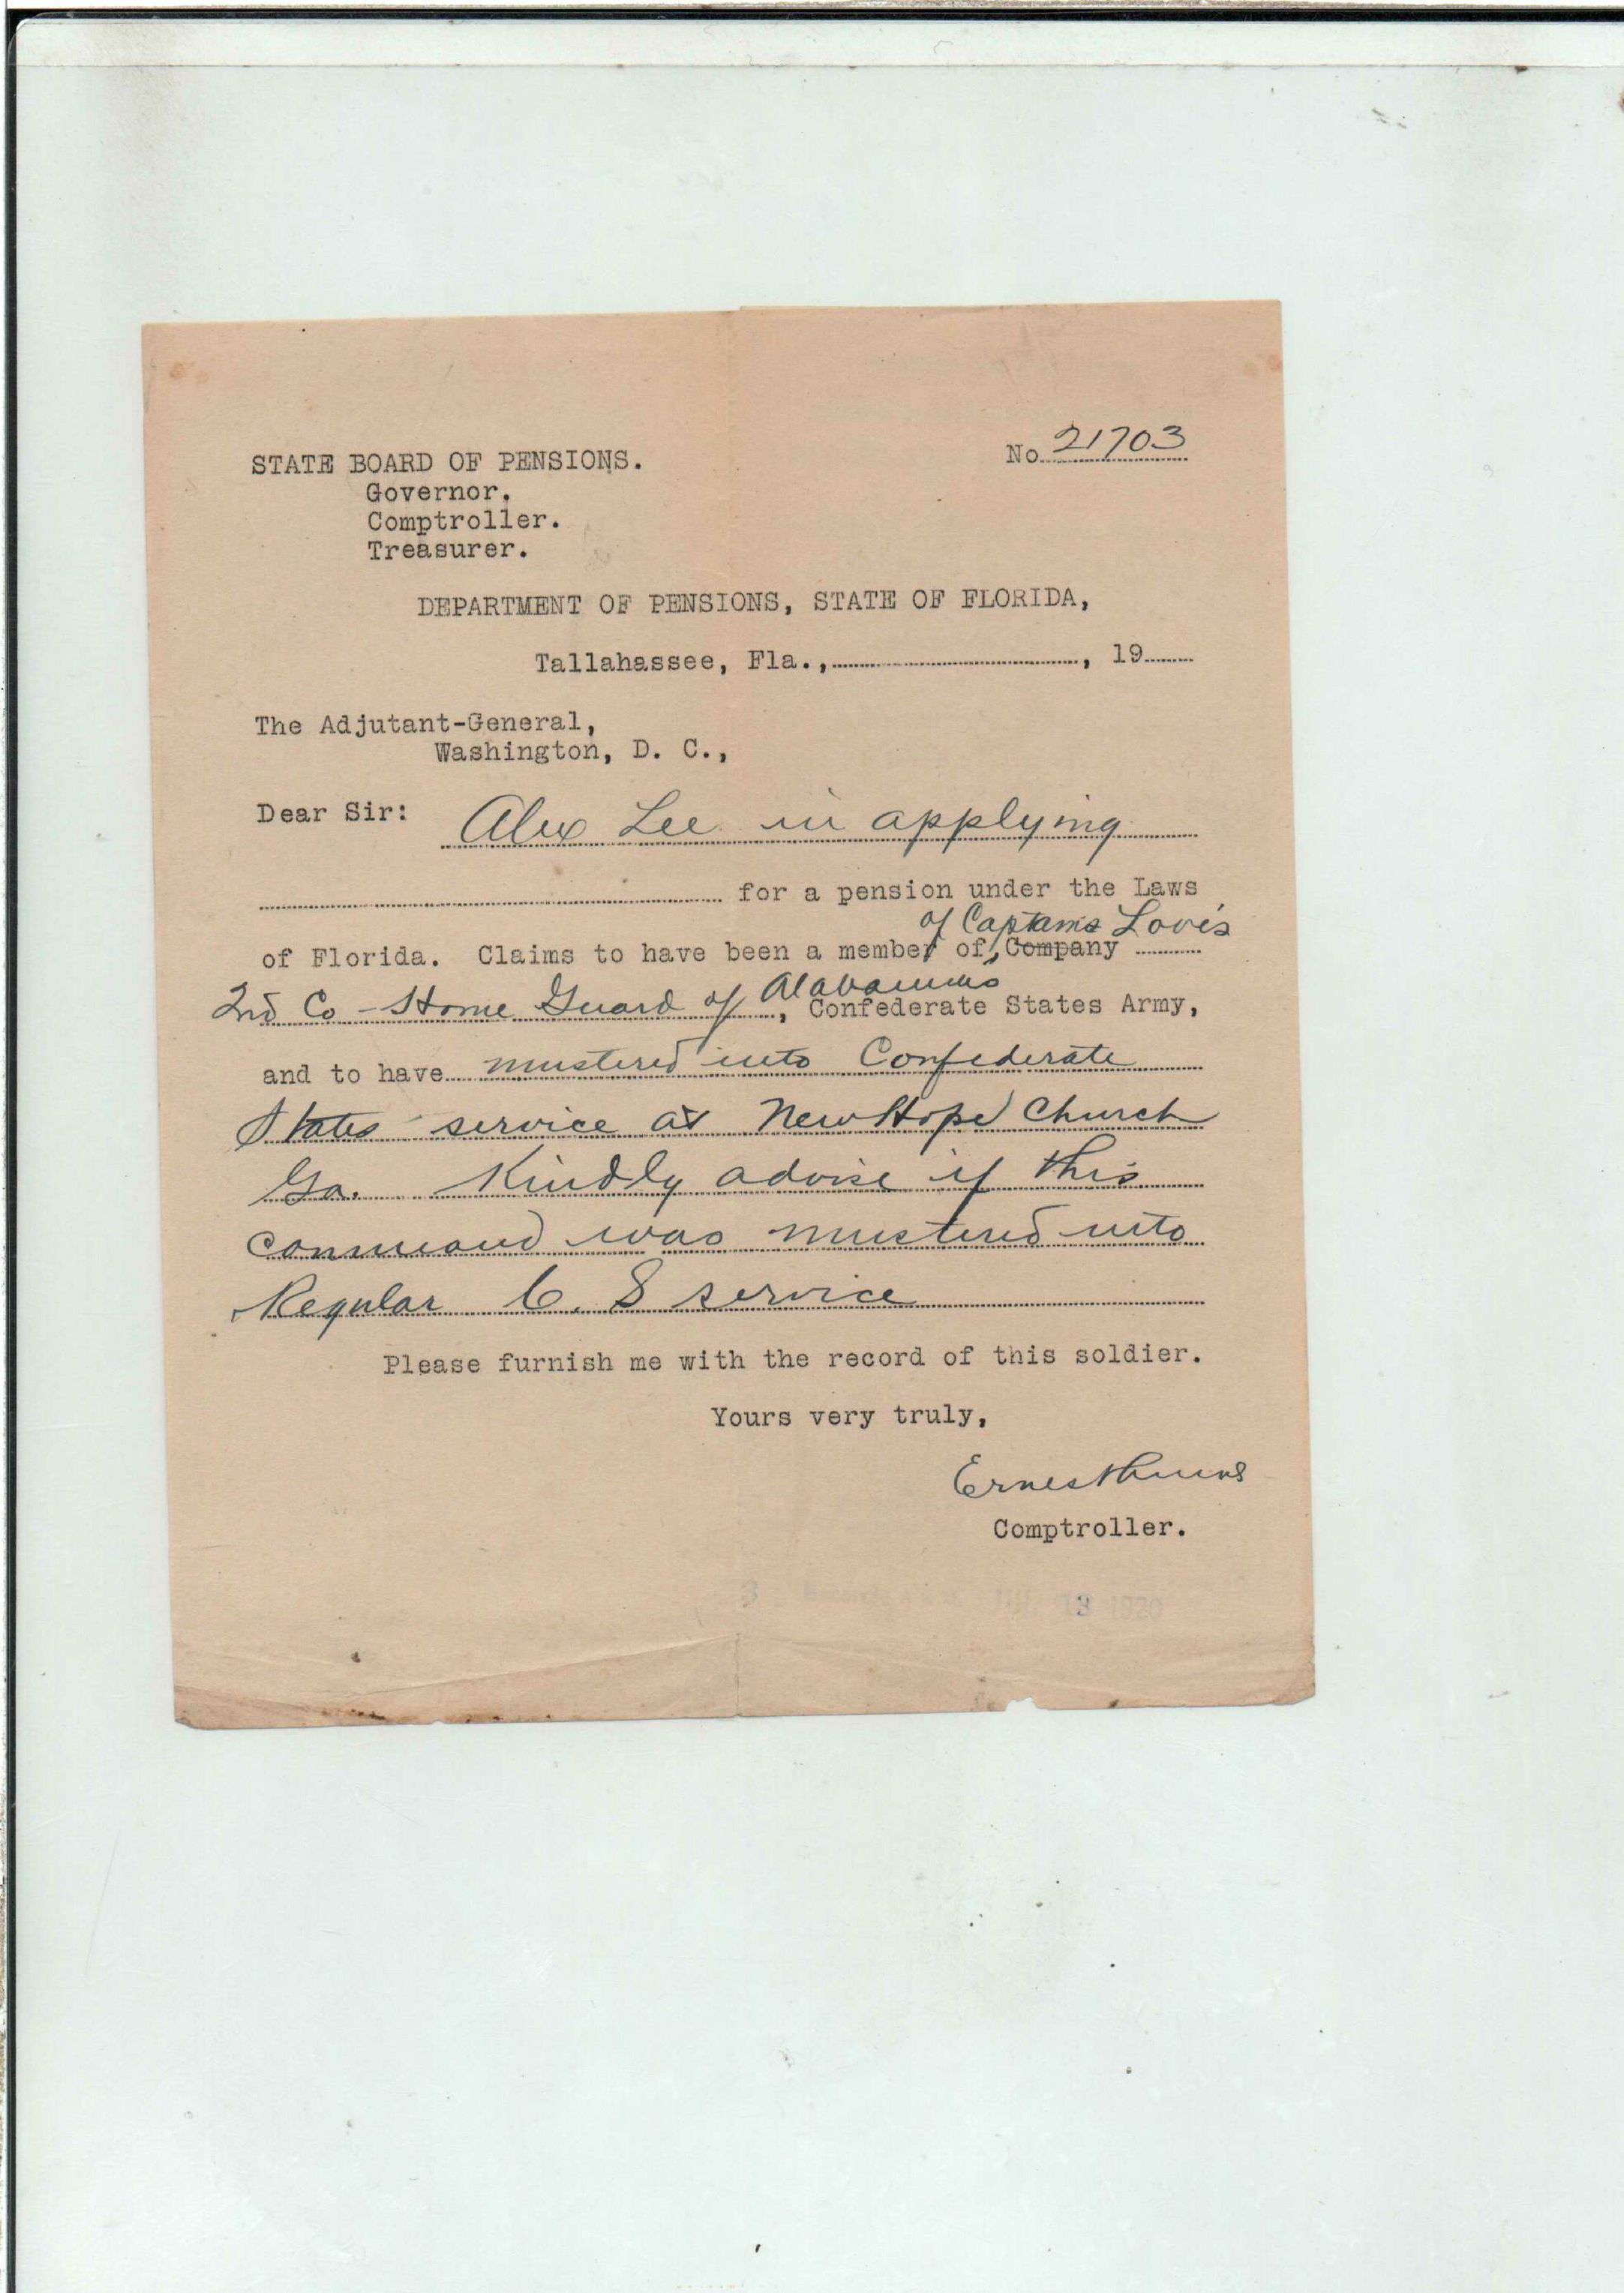 No. 21703
STATE BOARD OF PENSIONS.
Governor.
Comptroller.
Treasurer.
DEPARTMENT OF PENSIONS, STATE OF FLORIDA,
Tallahassee, Fla., , 19
The Adjutant-General,
Washington, D. C.,
Dear Sir: Alex Lee in applying
for a pension under the Laws
of Captains Love's
of Florida. Claims to have been a member of, Company
2nd Co - Home Guard of Alabama, Confederate States Army,
and to have mustered into Confederate
States service at New Hope Church
Ga. Kindly advise if this
command was mustered into
Regular C. S service
Please furnish me with the record of this soldier.
Yours very truly,
Ernest
Comptroller.
13 1920